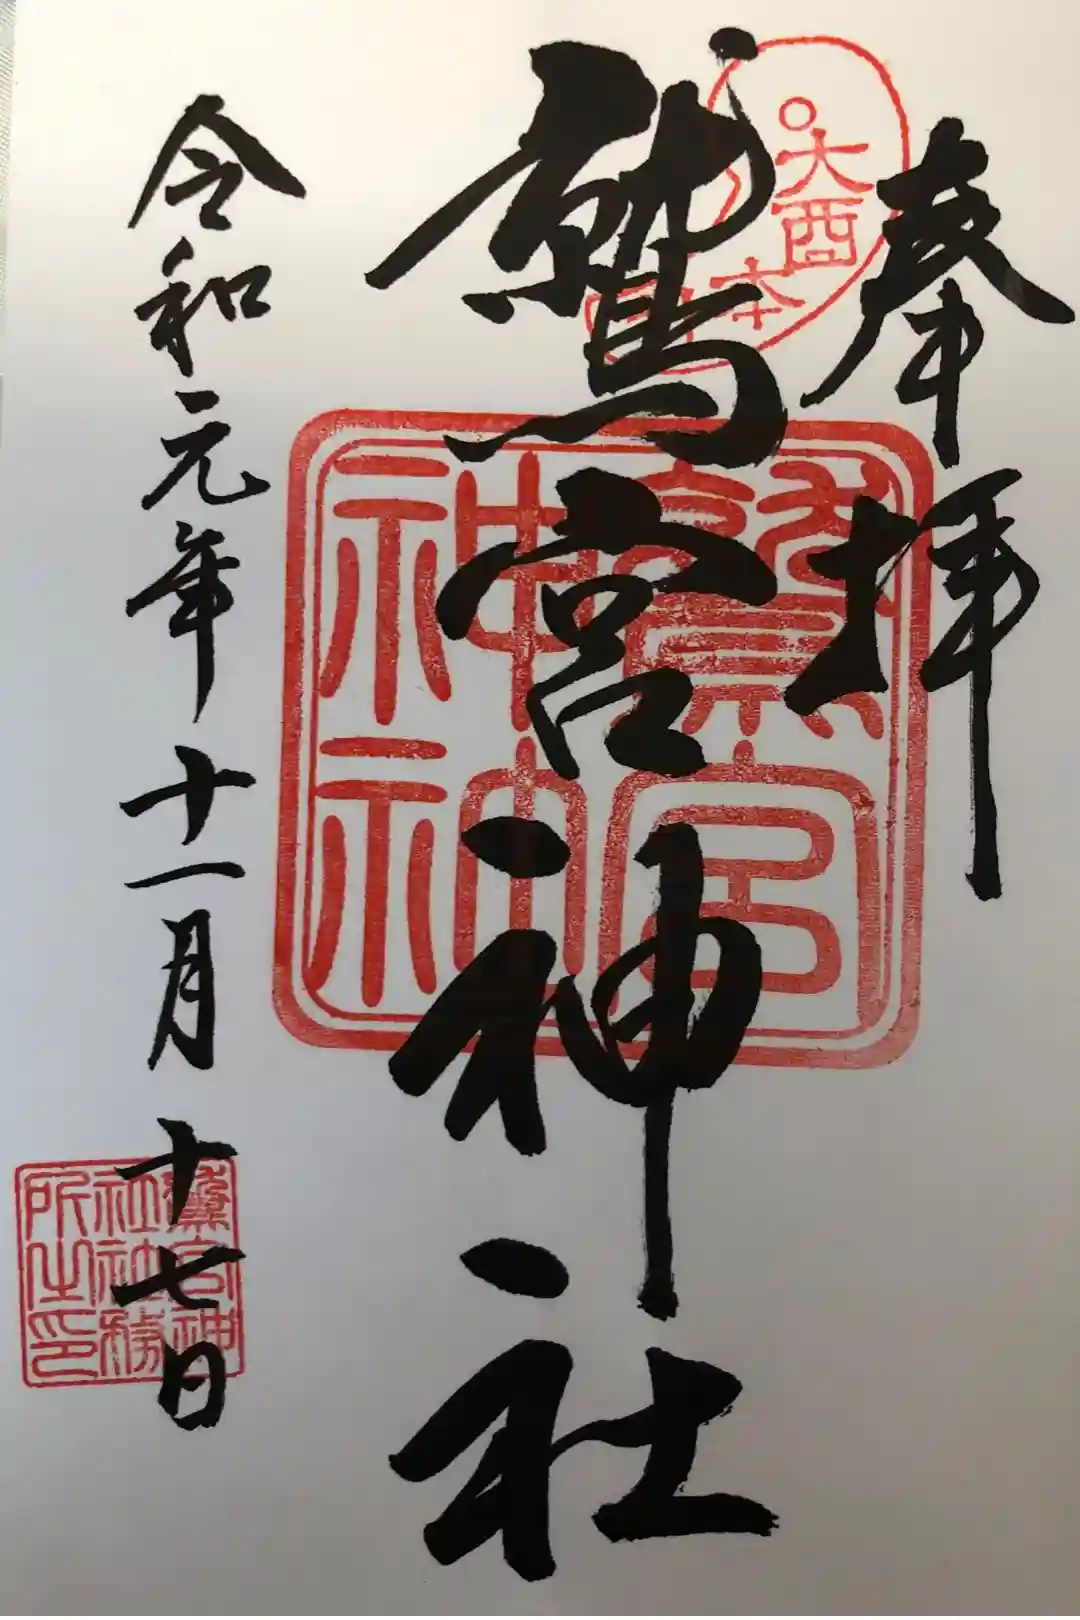 奉拝
大酉
本
鷲宮神社
鷲宮神社
鷲宮神
社社務
所之印
令和元年十一月十七日